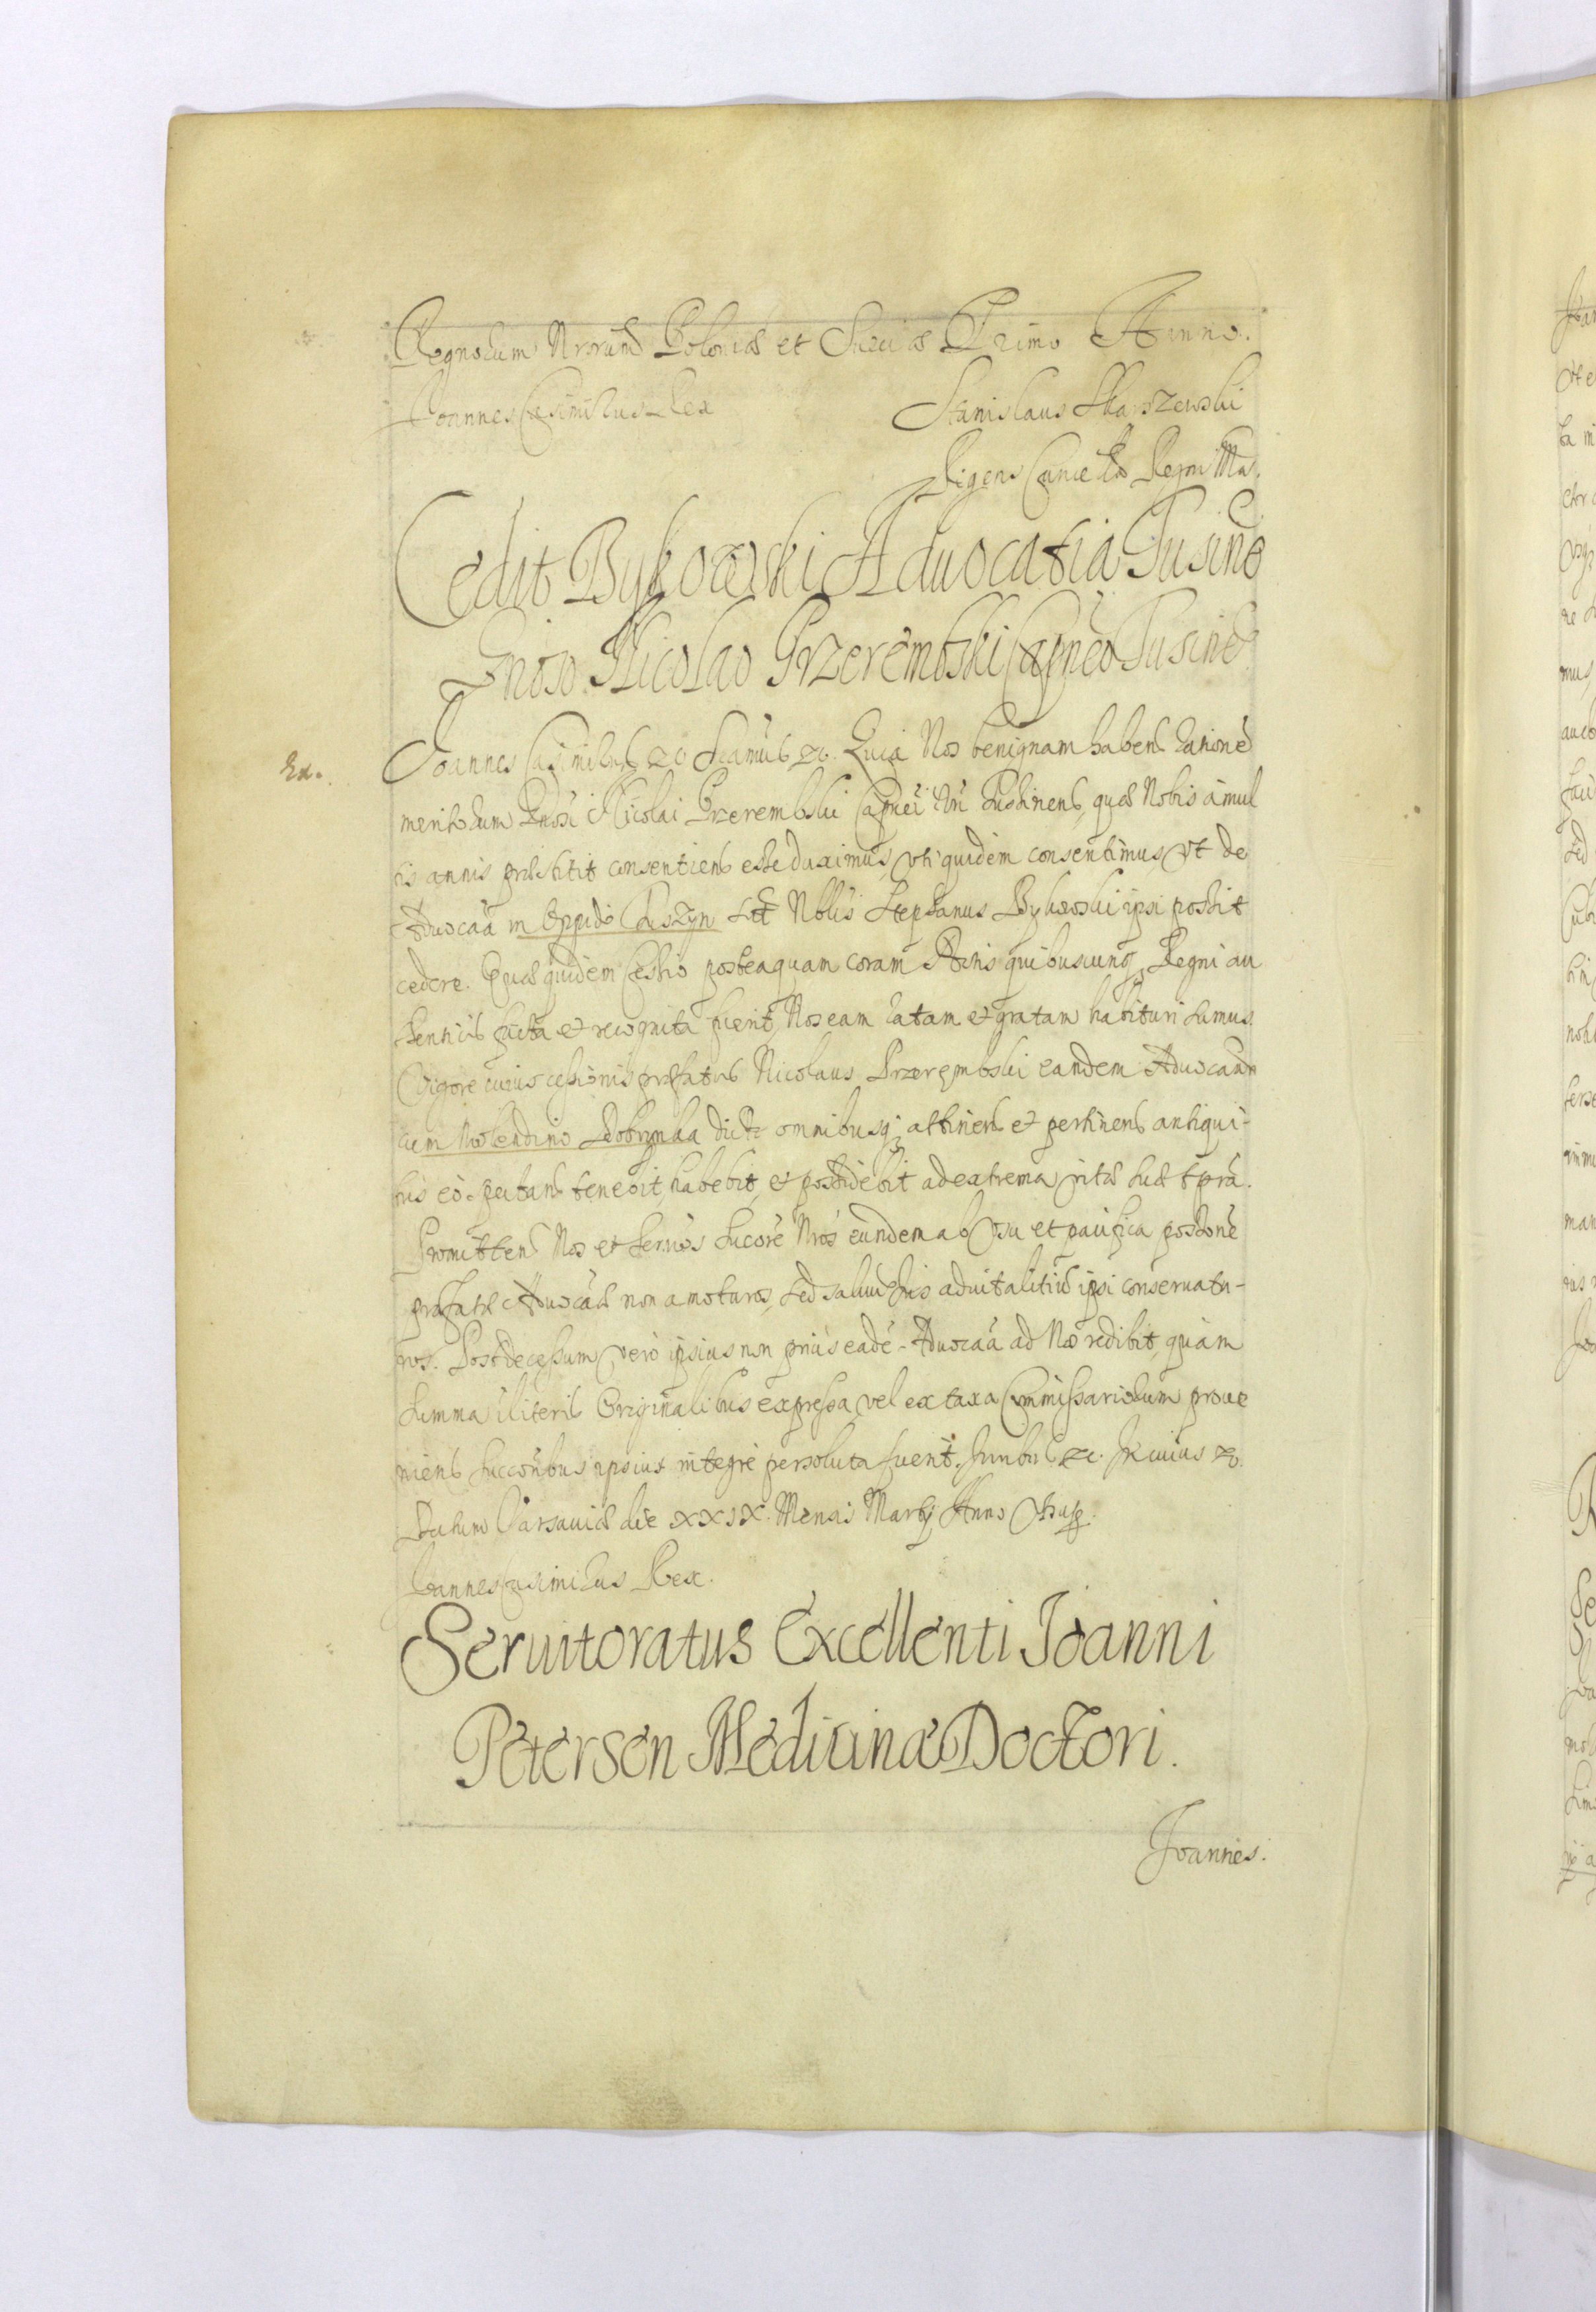 Regnorum Nrorum Poloniæ et Sueciæ Primo Anno.
Joannes Casimirus Rex Stanislaus Skarszewski
Rigens Cancell Regni Ma.
Cedit Bykowski Advocatia Tusine
Gnoso Nicolao Przerembski Capneo Tusine
Ex.
Joannes Casimirus etc Sicamus etc. Quia Nos benignam habens rationē
meritorum Gnosi Nicolai Przerembski Capnei Nri Tushinens, quæ Nobis à mul
tis annis præstitit consentiens esse duximus, uti quidem consentimus, Vt de
Aduocaā in Oppido Tuszyn Sit Nobis Stephanus Bykowski ipsi possit
cedere. Quæ quidem Cessio posteaquam coram Actis quibuscunq Regni au
tenticis facta et recognita fuerit, Nos eam ratam et gratam habituri sumus.
Vigore cuius cessionis præfatus Nicolaus Przerembski eandem Aduocaām
cum Molendino Dobrynka dicto omnibusq attinens et pertinens antiqui-
tus eò spectans tenebit, habebit, et possidebit ad extrema vitæ suæ tpra.
Promittens Nos et Serños Sucore Nros eundem ab vsu et pacifica possone
præfatæ Aduocaæ non amoturos, sed saluū Jus aduitalitiū ipsi conseruatu-
ros. Post decessum verò ipsius non prius eadē Aduocaā ad Nos redibit, quàm
summa ī literis Originalibus expressa, vel ex taxa Commissariorum proue
niens Succoribus ipsius integrè persoluta fuerit. Juribus etc. In cuius etc.
Datum Varsauiæ die XXIX. Mensis Martij Anno Vtsup.
Joannes Casimirus Rex.
Seruitoratus Excellenti Joanni
Petersen Medicinæ Doctori.
Joannes.